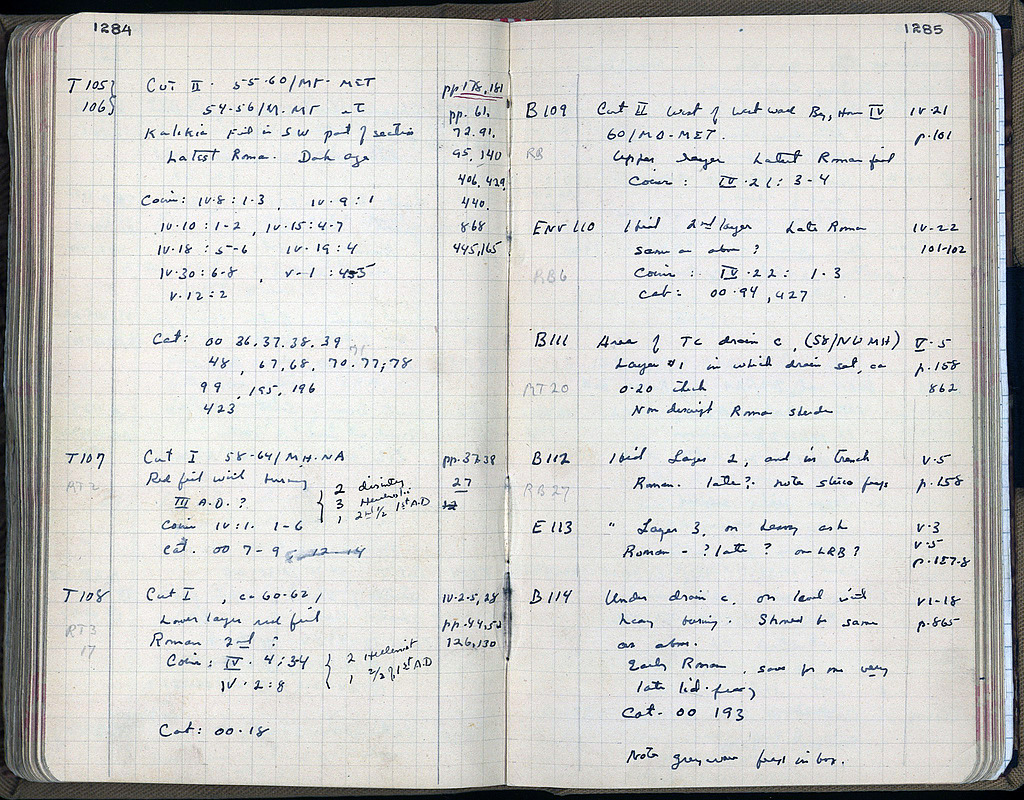 1284
T 105} Cut II. 55-60/MT-MET pp 178, 181
106} 54-56/M.MT pp. 61,
fill in SW part of section 72.91.
Latest Roman. Dark age 95, 140
406, 429,
Coin: IV-8 : 1-3, IV-9 : 1 440.
IV-10 : 1-2, IV-15 : 4-7 868
IV-18 : 5-6 IV-19 : 4 445, 165
IV-30 : 6-8, V-1 :
V-12 : 2
Cat: 00 36.37.38.39
48, 67, 68, 70.77, 78
99, 195, 196
423
T 107 Cut I 58-64/MH-NA pp. 37-38
RT 2 Red fill with 27
III A.D.? { 2
3
1 2nd ½ 1st A.D
Coin IV:1. 1-6
Cat. 00 7-9 12-14
T 108 Cut I, ca 60-62, IV-2-5, 28
Lower layer red fill pp. 44, 52
RT3 Roman 2nd ? 126, 130
17 Coin: IV. 4; 34 { 2 Hellenist
IV-2:8 1 2/2 of 1st A.D
Cat: 00-18
1285
B 109 Cut II West of west wall IV IV-21
60/MO-MET. p. 101
RB Upper layer Latest Roman fill
Coin: IV-21: 3-4
Env 110 Ibid 2nd layer Late Roman IV-22
same as above? 101-102
RB6 Coin: IV-22: 1-3
Cat: 00-94, 427
B 111 Area of TC drain c, (58/NUMH) V-5
Layer #1 in which drain set, ca p. 158
RT 20 0-20 thick 862
Non descript Roman sherds
B 112 Ibid Layer 2, and in trench V-5
RB 27 Roman. late?. note frags p. 158
E 113 " Layer 3, on heavy ash V-3
Roman - ? late? or LRB? V-5
p. 157-8
B 114 Under drain c, on level with VI-18
heavy burning. Stoned to same p. 865
as above.
Early Roman, save for one very
late lid-frag
Cat- 00 193
Note grey ware frags in box.